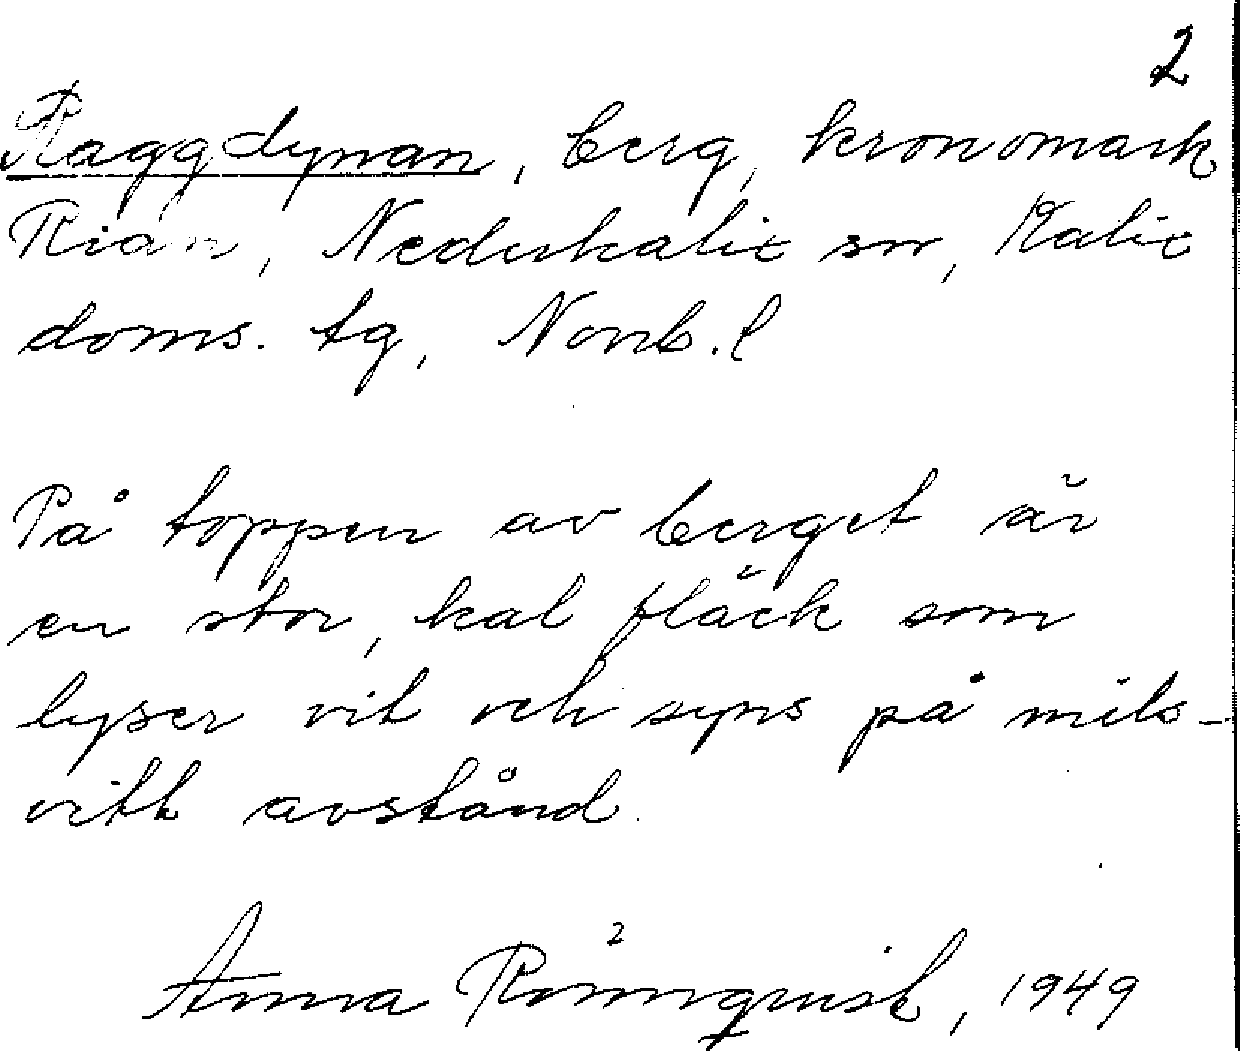 2
Raggdynan, berg, kronomark
Rian, Nederkalix sn, Kalix
doms. tg, Norrb. l
På toppen av berget är
en stor, kal fläck som
lyser vit och syns på mils-
vitt avstånd.
Anna Rönnqvist, 1949